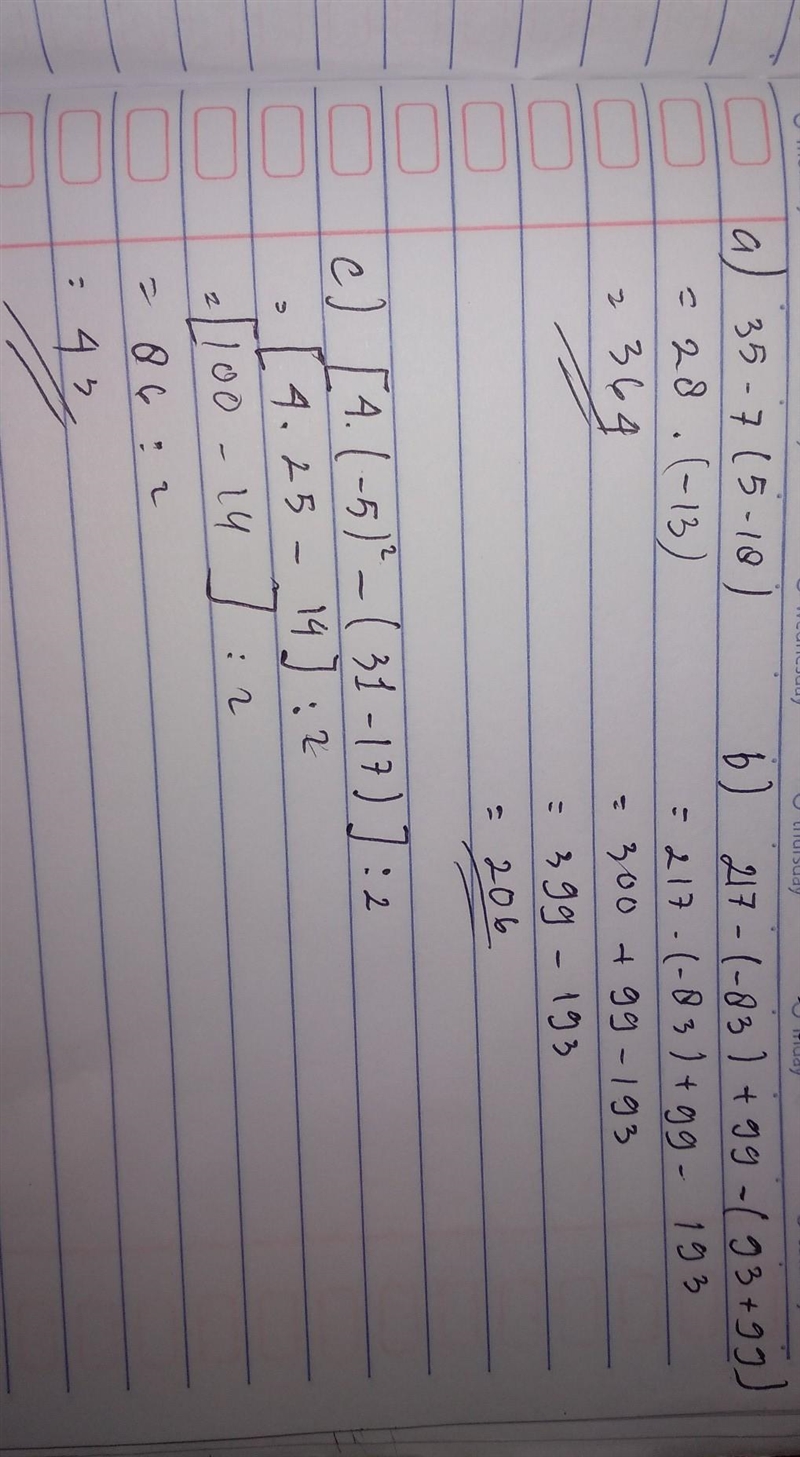 a) 35 - 7 (5 - 18)
= 28 . (-13)
= 364
b) 217 - (-83) + 99 - (93 + 99)
= 217 - (-83) + 99 - 193
= 300 + 99 - 193
= 399 - 193
= 206
c) [4. (-5)² - (31 - 17)] : 2
= [4. 25 - 14] : 2
= [100 - 14] : 2
= 86 : 2
= 43